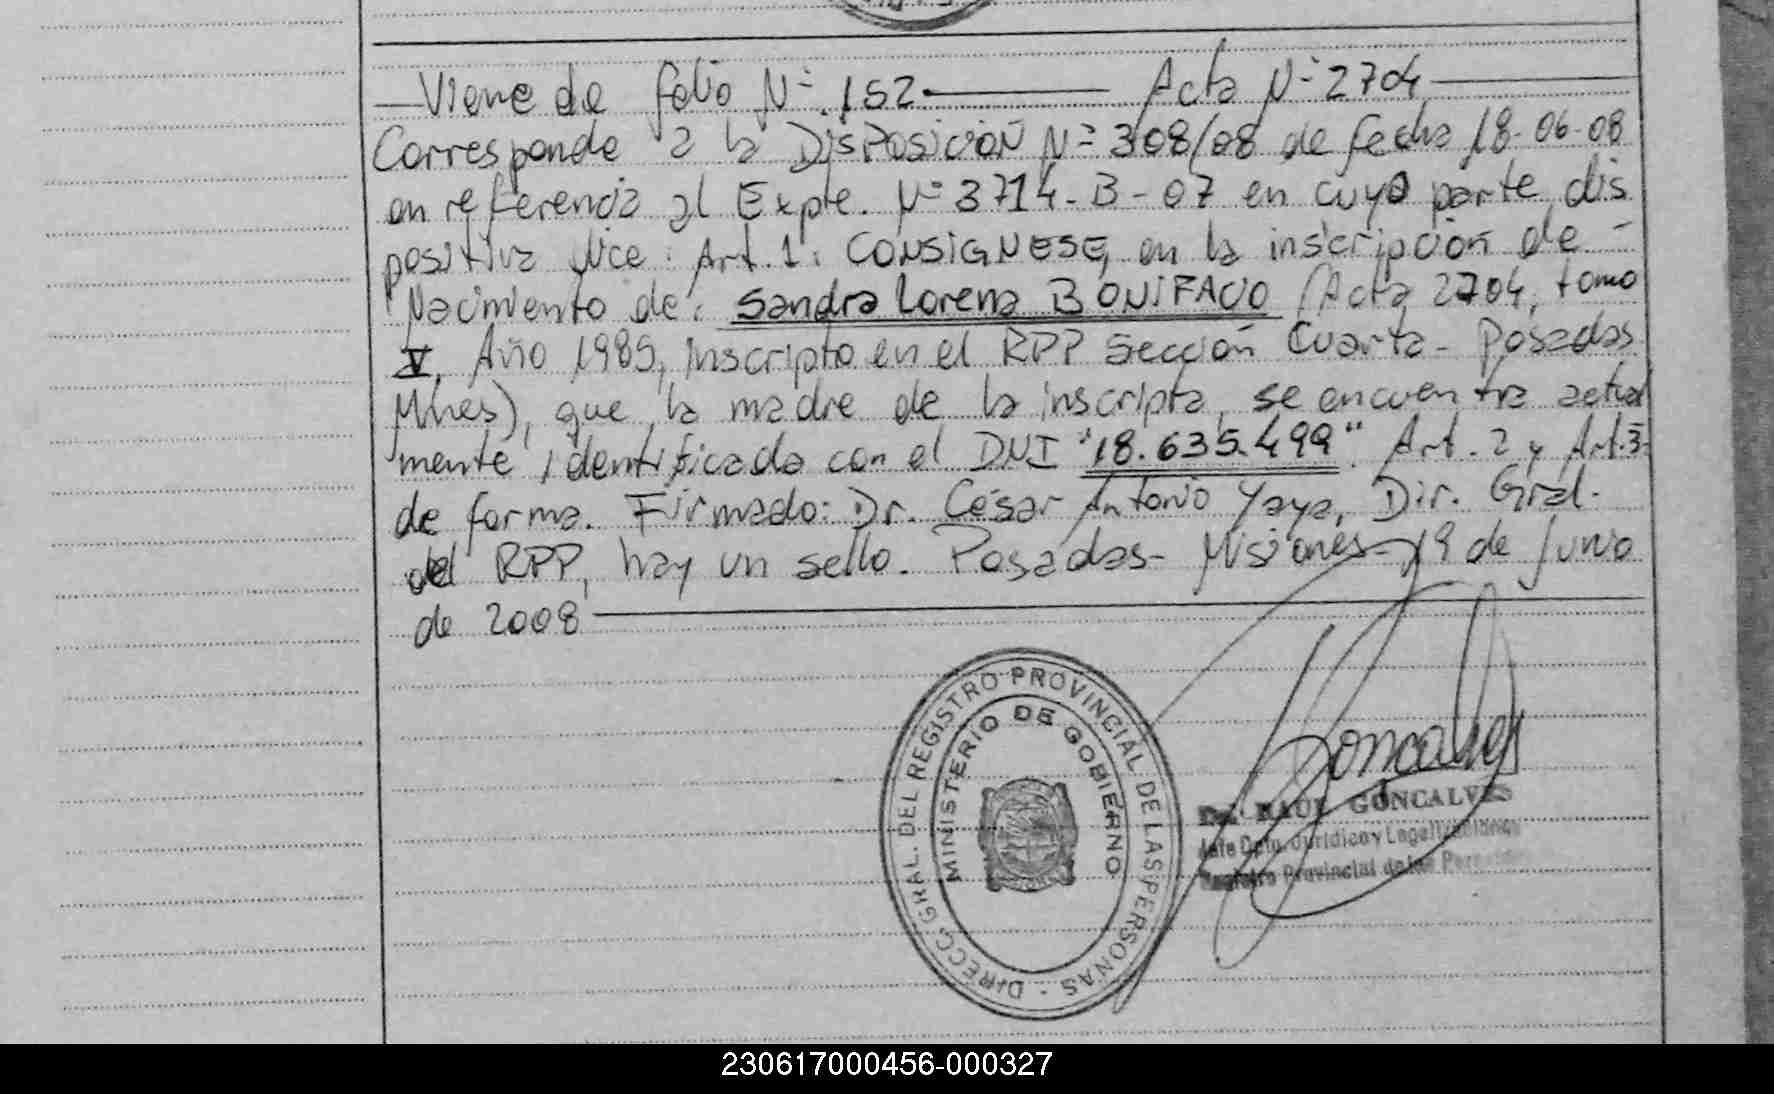 Viene de folio Nº 152 Acta Nº 2704
Corresponde a la Disposición Nº 308/08 de fecha 18-06-08
en referencia al Expte. Nº 3714-B-07 en cuya parte dis
positiva dice: Art. 1: CONSIGNESE, en la inscripción de -
Nacimiento de: Sandra Lorena BONIFACIO (Acta 2704, tomo
V, Año 1985, inscripto en el RPP Sección Cuarta - Posadas
Mnes), que la madre de la inscripta, se encuentra actual
mente identificada con el DNI "18.635.499". Art. 2 y Art. 3-
de forma. Firmado: Dr. César Antonio Yaya, Dir. Gral.
del RPP, hay un sello. Posadas - Misiones - 19 de Junio
de 2008
DIRECC. GRAL. DEL REGISTRO PROVINCIAL DE LAS PERSONAS -
MINISTERIO DE GOBIERNO
Goncalves
RAUL GONCALVES
Jefe Dpto. Jurídico y Legalizaciones
Registro Provincial de las Personas
230617000456-000327